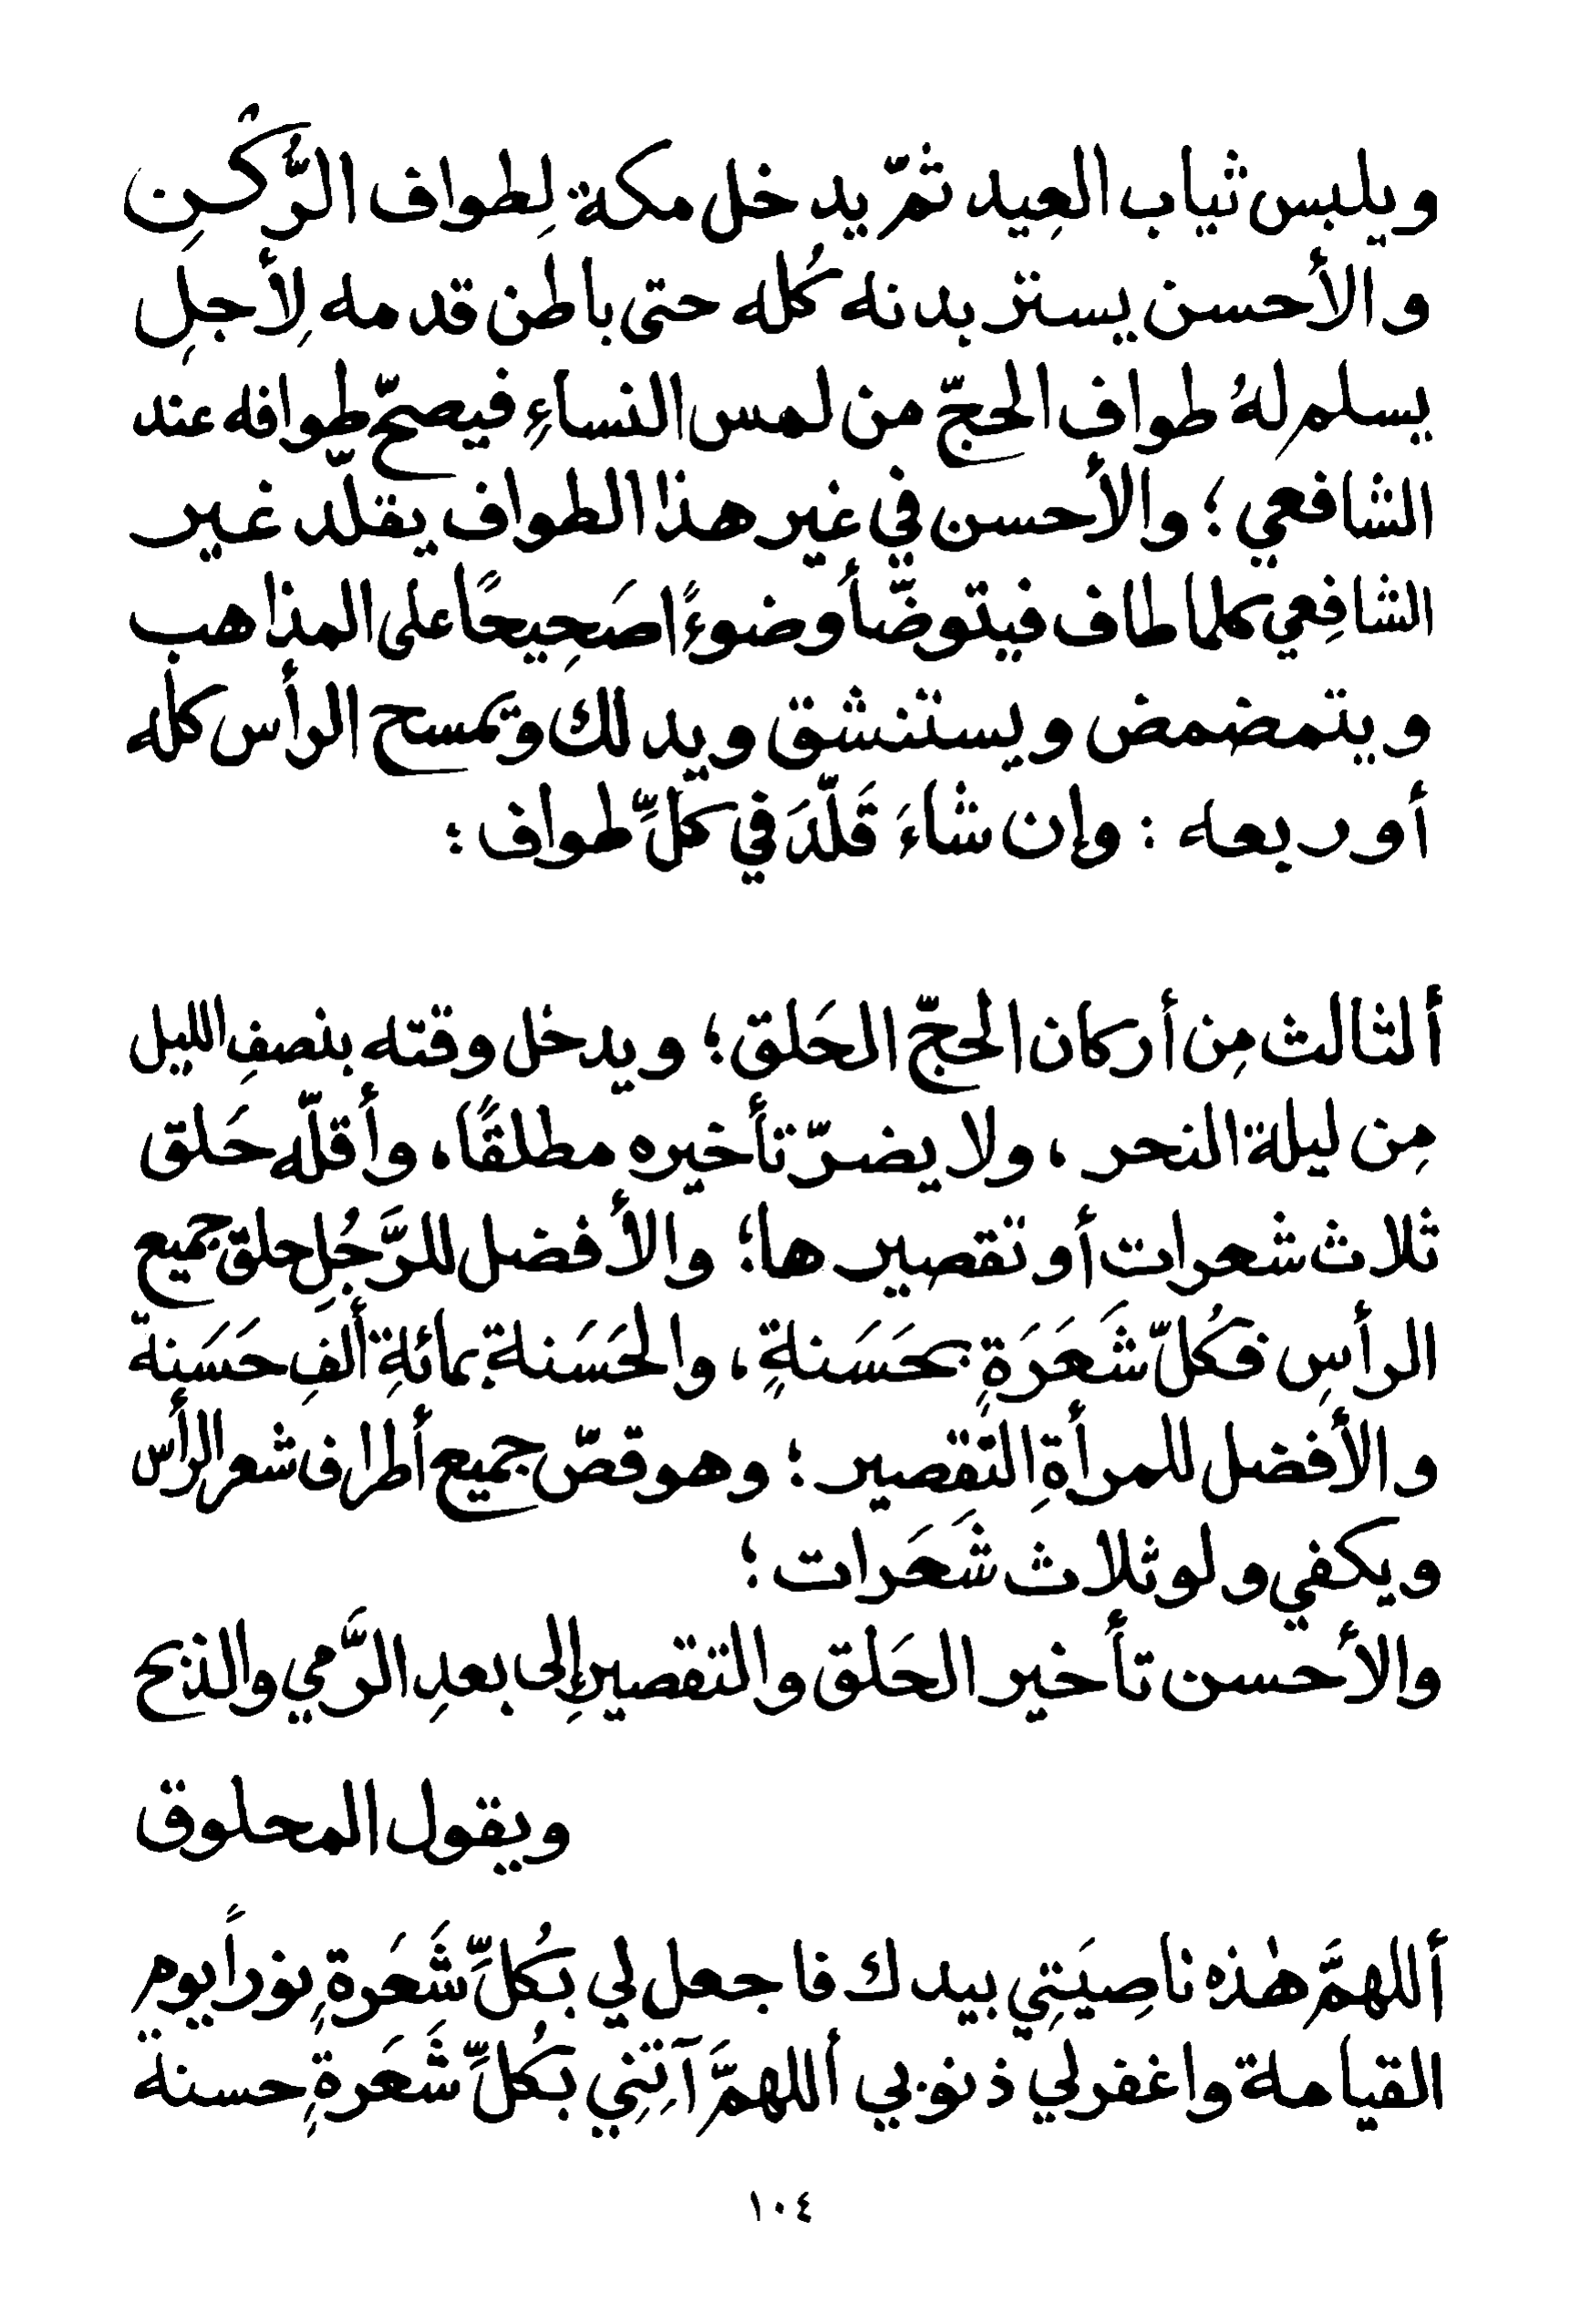 ويلبس ثياب العِيد ثمّ يدخل مكة لِطواف الرُّكْنِ
والأحسن يستر بدنه كُله حتى باطن قدمه لِأجلِ
يسلم لهُ طواف الحجّ من لمس النساءِ فيصحّ طوافه عند
الشافعي ؛ والأحسن في غير هذا الطواف يقلّد غير
الشافِعي كلما طاف فيتوضّأ وضوءًا صَحِيحًا على المذاهب
ويتمضمض ويستنشق ويدلك وتمسح الرأس كله
أو ربعه : وإن شاءَ قَلّدَ في كلِّ طواف :
ألثالث مِن أركان الحجّ الحَلق ؛ ويدخل وقته بنصفِ الليل
مِن ليلة النحر ، ولا يضرّ تأخيره مطلقًا ، وأقلّه حَلق
ثلاث شعرات أو تقصيرها ؛ والأفضل للرَّجُلِ حلق جميع
الرأسِ فكُلّ شَعَرَةٍ بحَسَنةٍ ، والحَسَنة بمائةِ ألفِ حَسَنة
والأفضل للمرأةِ التقصير ؛ وهو قصّ جميع أطراف شعر الرأس
ويكفي ولو ثلاث شَعَرات ؛
والأحسن تأخير الحَلق والتقصير إلى بعدِ الرَّمي والذبح
ويقول المحلوق
أللهمَّ هٰذه ناصِيَتِي بيدك فاجعل لي بكُلِّ شَعَرةٍ نوراً يوم
القيامة واغفرلي ذنوبي أللهمَّ آتِنِي بكُلِّ شَعَرةٍ حسنة
١٠٤